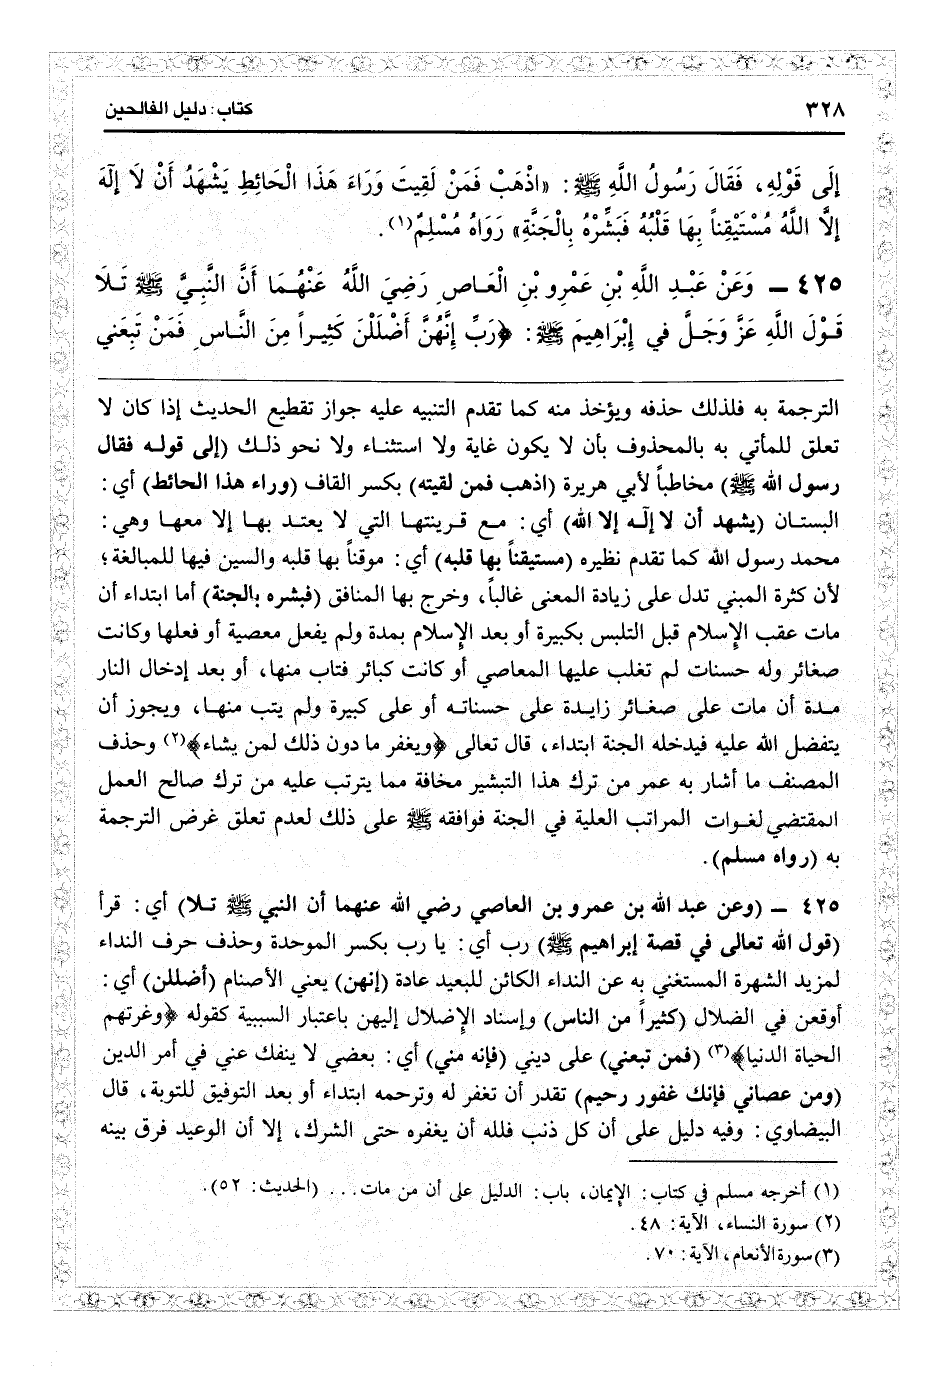 ٣٢٨
كتاب: دليل الفالحين
إِلَى قَوْلِهِ، فَقَالَ رَسُولُ اللَّهِ ﷺ: «اذْهَبْ فَمَنْ لَقِيتَ وَرَاءَ هَذَا الْحَائِطِ يَشْهَدُ أَنْ لَا إِلَهَ
إِلَّا اللَّهُ مُسْتَيْقِناً بِهَا قَلْبُهُ فَبَشِّرْهُ بِالْجَنَّةِ» رَوَاهُ مُسْلِمٌ(١).
٤٢٥ - وَعَنْ عَبْدِ اللَّهِ بْنِ عَمْرِو بْنِ الْعَاصِ رَضِيَ اللَّهُ عَنْهُمَا أَنَّ النَّبِيَّ ﷺ تَلَا
قَوْلَ اللَّهِ عَزَّ وَجَلَّ في إِبْرَاهِيمَ ﷺ: ﴿رَبِّ إِنَّهُنَّ أَضْلَلْنَ كَثِيراً مِنَ النَّاسِ فَمَنْ تَبِعَني
الترجمة به فلذلك حذفه ويؤخذ منه كما تقدم التنبيه عليه جواز تقطيع الحديث إذا كان لا
تعلق للمأتي به بالمحذوف بأن لا يكون غاية ولا استثناء ولا نحو ذلك (إلى قوله فقال
رسول الله ﷺ) مخاطباً لأبي هريرة (اذهب فمن لقيته) بكسر القاف (وراء هذا الحائط) أي:
البستان (يشهد أن لا إله إلا الله) أي: مع قرينتها التي لا يعتد بها إلا معها وهي:
محمد رسول الله كما تقدم نظيره (مستيقناً بها قلبه) أي: موقناً بها قلبه والسين فيها للمبالغة؛
لأن كثرة المبني تدل على زيادة المعنى غالباً، وخرج بها المنافق (فبشره بالجنة) أما ابتداء أن
مات عقب الإسلام قبل التلبس بكبيرة أو بعد الإسلام بمدة ولم يفعل معصية أو فعلها وكانت
صغائر وله حسنات لم تغلب عليها المعاصي أو كانت كبائر فتاب منها، أو بعد إدخال النار
مدة أن مات على صغائر زايدة على حسناته أو على كبيرة ولم يتب منها، ويجوز أن
يتفضل الله عليه فيدخله الجنة ابتداء، قال تعالى ﴿ويغفر ما دون ذلك لمن يشاء﴾(٢) وحذف
المصنف ما أشار به عمر من ترك هذا التبشير مخافة مما يترتب عليه من ترك صالح العمل
المقتضي لغوات المراتب العلية في الجنة فوافقه ﷺ على ذلك لعدم تعلق غرض الترجمة
به (رواه مسلم).
٤٢٥ - (وعن عبد الله بن عمرو بن العاصي رضي الله عنهما أن النبي ﷺ تلا) أي: قرأ
(قول الله تعالى في قصة إبراهيم ﷺ) رب أي: يا رب بكسر الموحدة وحذف حرف النداء
لمزيد الشهرة المستغني به عن النداء الكائن للبعيد عادة (إنهن) يعني الأصنام (أضللن) أي:
أوقعن في الضلال (كثيراً من الناس) وإسناد الإضلال إليهن باعتبار السببية كقوله ﴿وغرتهم
الحياة الدنيا﴾(٣) (فمن تبعني) على ديني (فإنه مني) أي: بعضي لا ينفك عني في أمر الدين
(ومن عصاني فإنك غفور رحيم) تقدر أن تغفر له وترحمه ابتداء أو بعد التوفيق للتوبة، قال
البيضاوي: وفيه دليل على أن كل ذنب فلله أن يغفره حتى الشرك، إلا أن الوعيد فرق بينه
(١) أخرجه مسلم في كتاب: الإيمان، باب: الدليل على أن من مات... (الحديث: ٥٢).
(٢) سورة النساء، الآية: ٤٨.
(٣) سورة الأنعام، الآية: ٧٠.